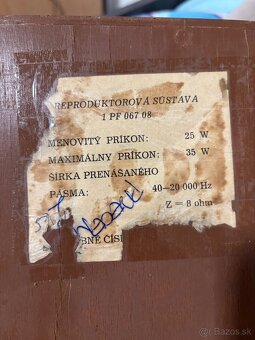 REPRODUKTOROVÁ SÚSTAVA
1 PF 067 08
MENOVITÝ PRÍKON: 25 W
MAXIMÁLNY PRÍKON: 35 W
ŠÍRKA PRENÁŠANÉHO
PÁSMA: 40—20 000 Hz
Z = 8 ohm
BNÉ ČÍSL
Bazos.sk